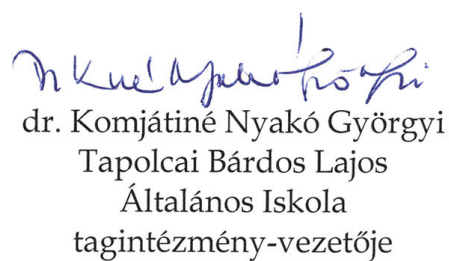 dr. Komjátiné Nyakó Györgyi
Tapolcai Bárdos Lajos
Általános Iskola
tagintézmény-vezetője